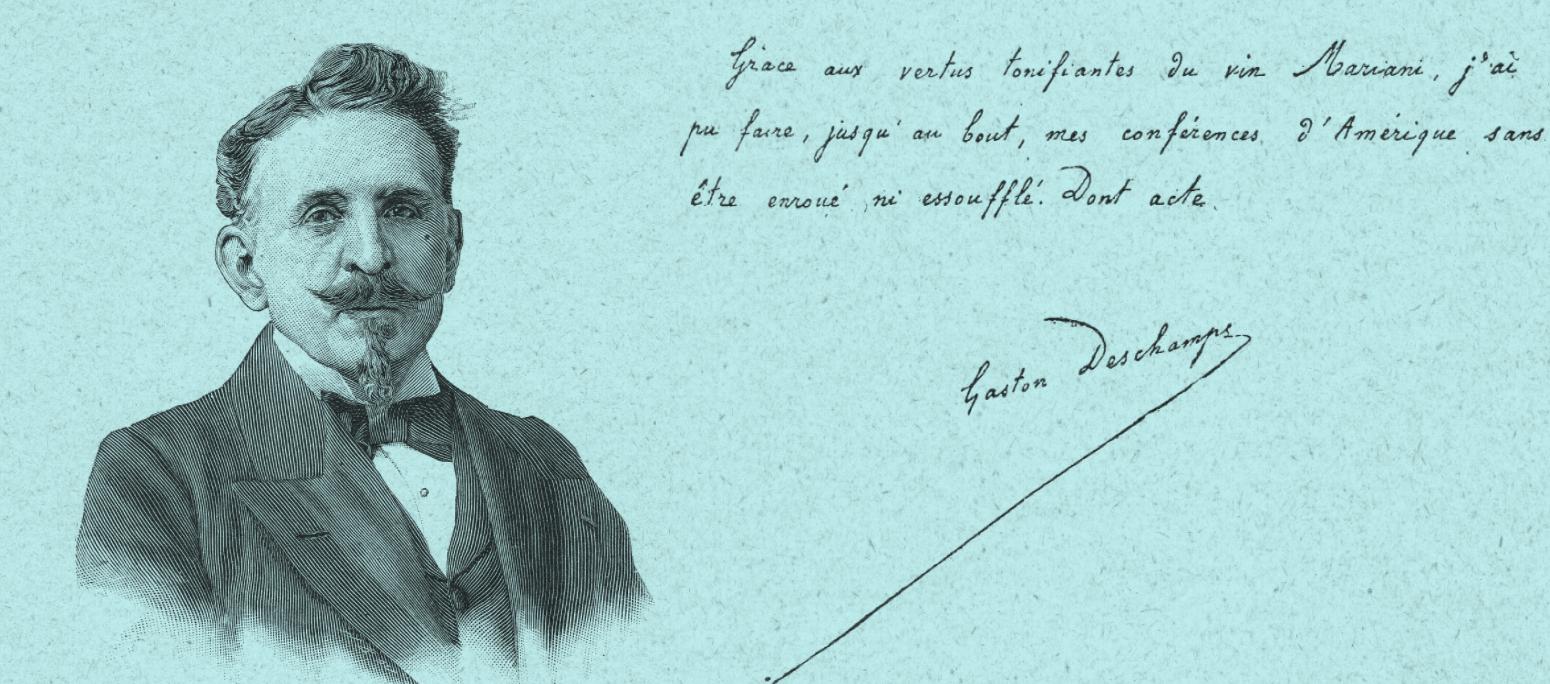 Grâce aux vertus tonifiantes du vin Mariani, j'ai
pu faire, jusqu'au bout, mes conférences d'Amérique sans
être enroué ni essoufflé. Dont acte.
Gaston Deschamps